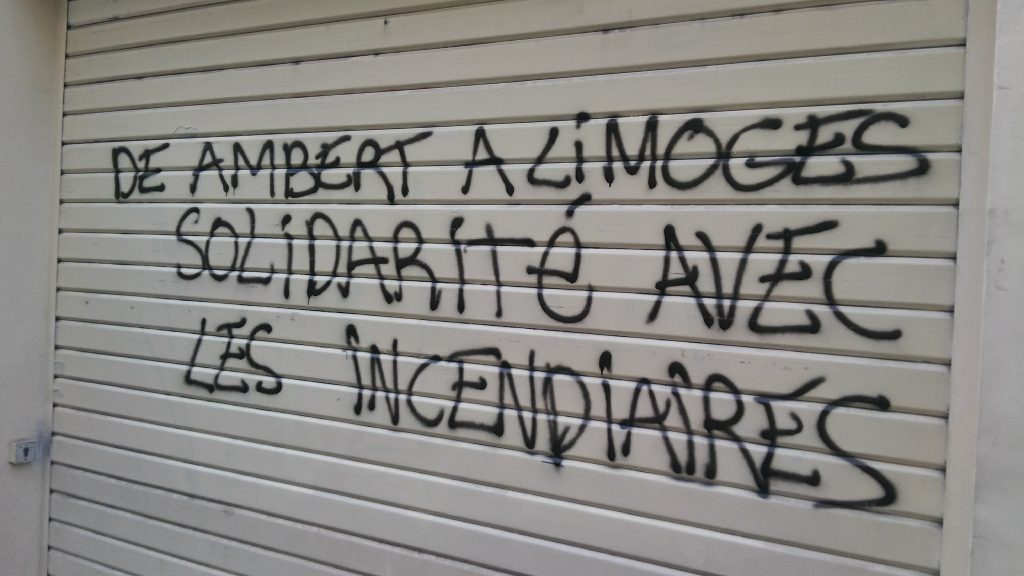 DE AMBERT A LiMOGES
SOLiDARité AVEC
LES iNCENDiAiRES